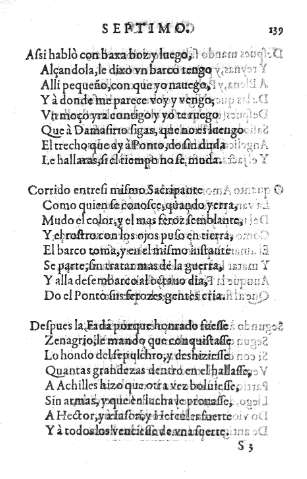 SEPTIMO. 139
Assi hablò con baxa boz y luego,
Alçandola, le dixo vn barco tengo
Alli pequeño, con que yo nauego,
Y à donde me parece voy y vengo,
Vn moço yra contigo y yo te ruego
Que à Damasirio sigas, que no es luengo
El trecho que ay à Ponto, do sin duda
Le hallaras, si el tiempo no se muda.
Corrido entresi mismo Sacripante
Como quien se conosce, quando yerra,
Mudo el color, y el mas feroz semblante,
Y el rostro con los ojos puso en tierra,
El barco toma, y en el mismo instante
Se parte, sin tratar mas de la guerra,
Y alla desembarco al octauo dia,
Do el Ponto sus ferozes gentes cria.
Despues la Fada porque honrado fuesse
Zenagrio, le mando que conquistasse
Lo hondo del sepulchro, y deshiziesse
Quantas grandezas dentro en el hallasse,
A Achilles hizo que otra vez boluiesse,
Sin armas, y que en lucha le prouasse,
A Hector, y à Iason, y Hercules fuerte
Y à todos los venciesse de vna suerte.
S 3